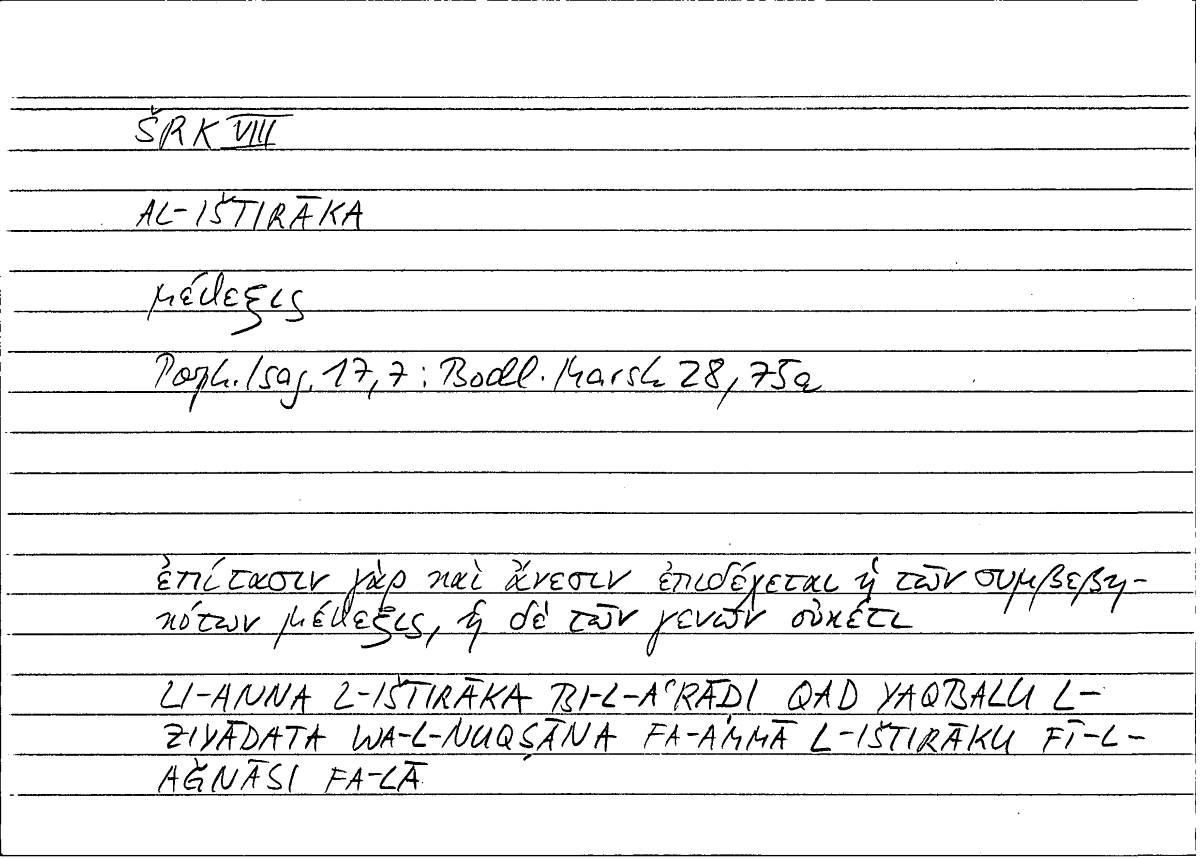 ŠRK VIII
AL-IŠTIRĀKA
μέθεξις
Porph. Isag. 17,7 : Bodl. Marsh 28, 75a
ἐπίτασιν γὰρ καὶ ἄνεσιν ἐπιδέχεται ἡ τῶν συμβεβη-
κότων μέθεξις, ἡ δὲ τῶν γενῶν οὐκέτι
LI-ANNA L-IŠTIRĀKA BI-L-AʿRĀḌI QAD YAQBALU L-
ZIYĀDATA WA-L-NUQṢĀNA FA-AMMĀ L-IŠTIRĀKU FĪ-L-
AĞNĀSI FA-LĀ